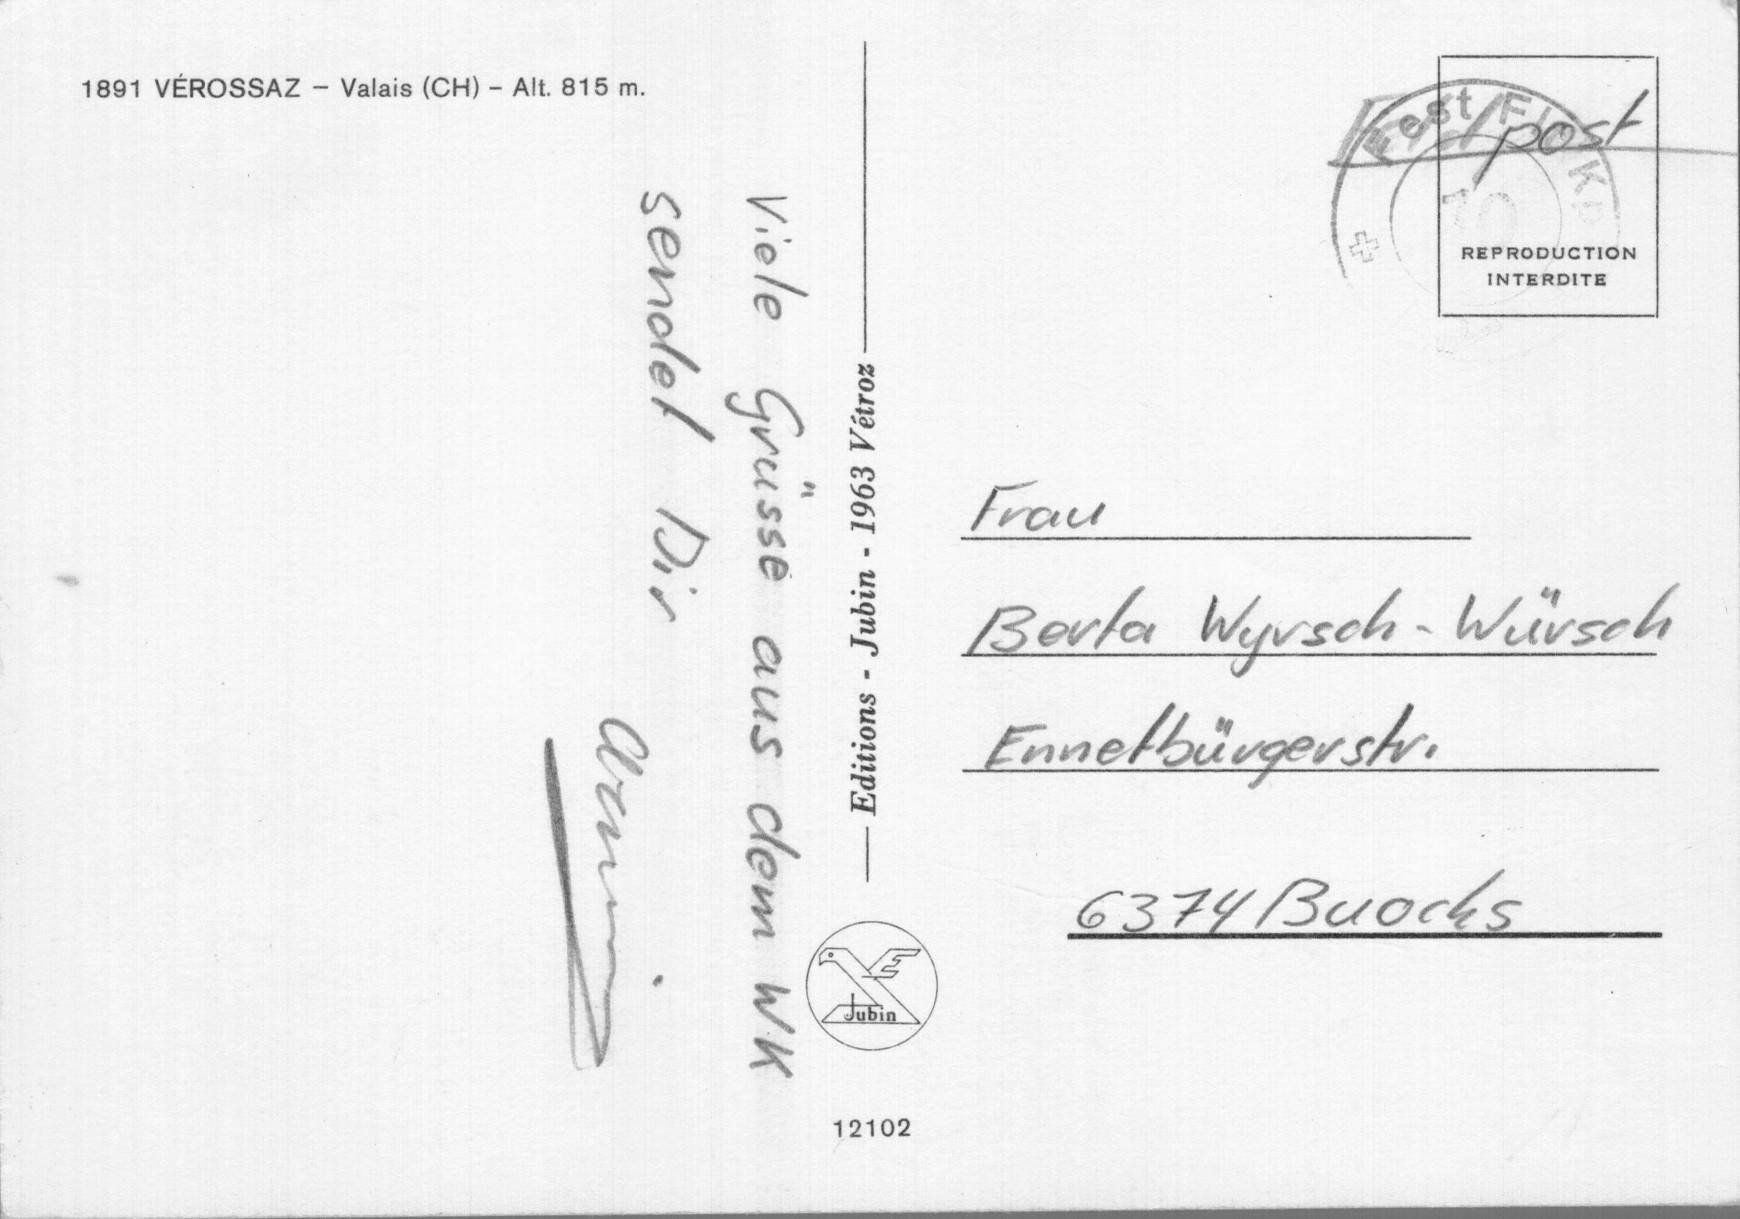 1891 VÉROSSAZ – Valais (CH) – Alt. 815 m.
Viele Grüsse aus dem WK
sendet Dir
Editions - Jubin - 1963 Vétroz
Jubin
12102
Feldpost
REPRODUCTION
INTERDITE
Frau
Berta Wyrsch-Würsch
Ennetbürgerstr.
6374 Buochs